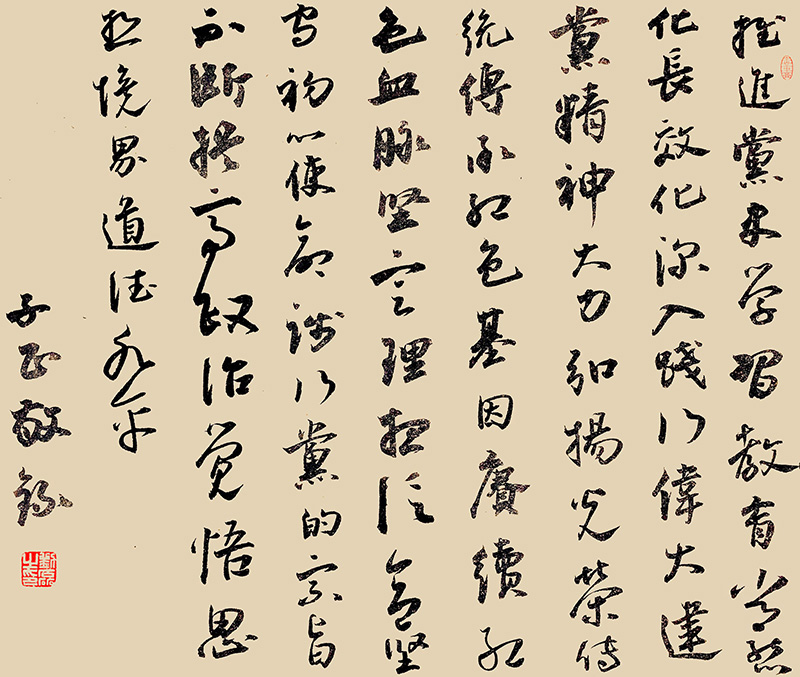 推進黨史学習教育常態
化長效化深入踐行偉大建
黨精神大力弘揚光榮傳
統傳承紅色基因賡續紅
色血脉堅定理想信念堅
守初心使命踐行黨的宗旨
不断提高政治覺悟思
想境界道德水平
子正敬錄